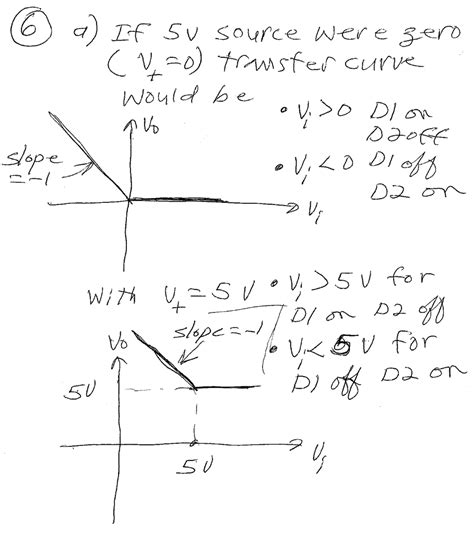 ⑥ a) If 5V source were zero
(V+ = 0) transfer curve
would be
• Vi > 0 D1 on
D2 off
• Vi < 0 D1 off
D2 on
Vo
slope
= -1
Vi
With V+ = 5V
• Vi > 5V for
D1 on D2 off
• Vi < 5V for
D1 off D2 on
Vo
slope = -1
5V
5V
Vi